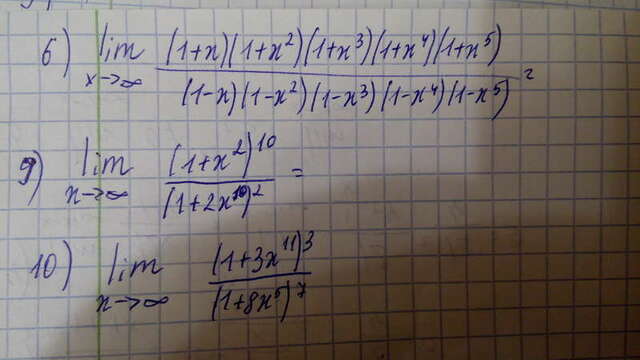 6) lim x→∞ (1+x)(1+x²)(1+x³)(1+x⁴)(1+x⁵) / (1-x)(1-x²)(1-x³)(1-x⁴)(1-x⁵) =
9) lim x→∞ (1+x²)¹⁰ / (1+2x¹⁰)² =
10) lim x→∞ (1+3x¹¹)³ / (1+8x⁵)⁷